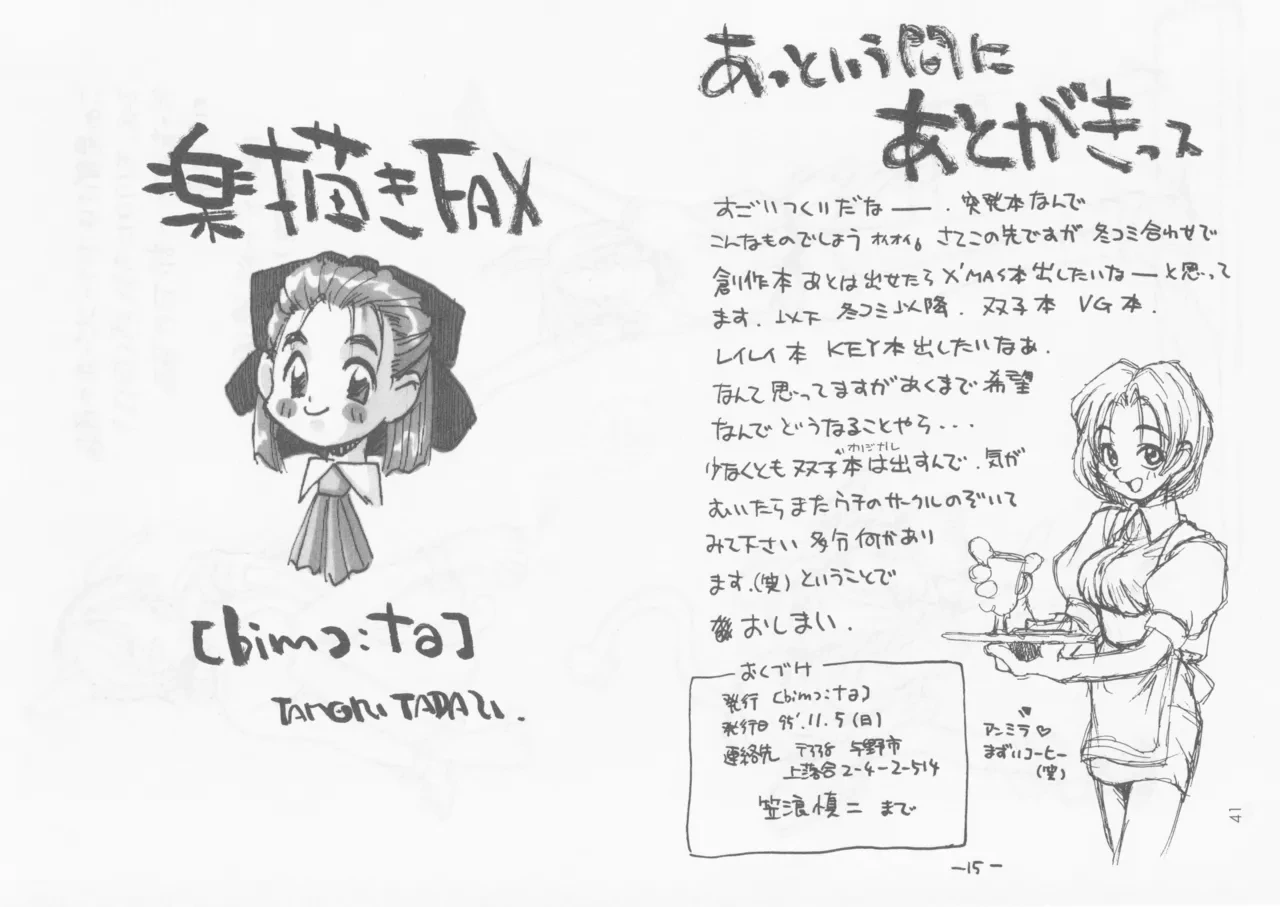 楽描きFAX
[bimɔ:ta]
あっという間に
あとがきっス
すごいつくりだなー. 突発本なんで
こんなものでしょう オイオイ。さてこの先ですが 冬コミ合わせで
創作本 あとは出せたら X'MAS本出したいなーと思って
ます. 以下 冬コミ以降. 双子本 VG本.
レイレイ本 KEY本出したいなあ.
なんて思ってますがあくまで希望
なんでどうなることやら・・・
オリジナル
少なくとも双子本は出すんで.気が
むいたらまたうちのサークルのぞいて
みて下さい 多分何かあり
ます.(笑) ということで
おしまい.
おくづけ
発行 [bimɔ:ta]
発行日 95'.11.5(日)
連絡先 〒338 与野市
上落合2-4-2-514
笠浪慎二 まで
アンミラ♡
まずいコーヒー
(笑)
-15-
41